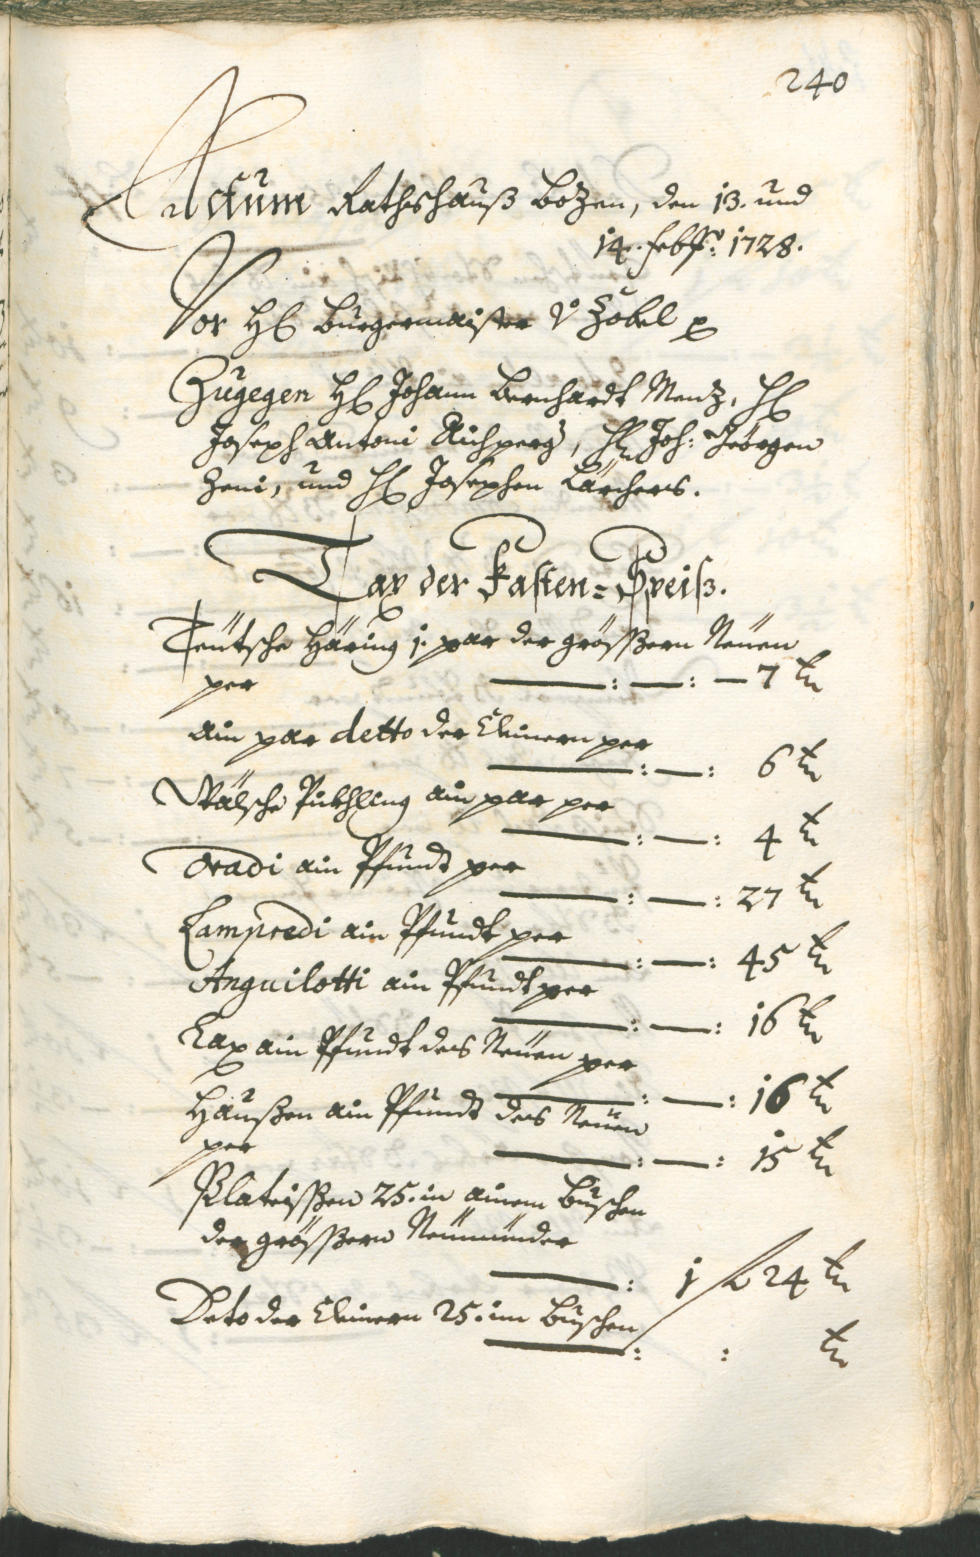 240
Actum Rathshauß Bozen, den 13. und
14. febr: 1728.
Vor H Burgermaister v: Zobel p
Zugegen H Johann Bernhardt Menz, H
Joseph Antoni Aichperg, H Joh: Geörgen
Zeni, und H Josephen Larchers.
Tax der Fasten-Speiß.
Teütsche Häring 1. par der größßern Neüen
per —:—:— 7 kr
ain par detto der Clainern per
—:—: 6 kr
Wälsche Pükhling ain par per
—:—: 4 kr
Oradi ain Pfundt per
—:—: 27 kr
Lampredi ain Pfundt per
—:—: 45 kr
Anguilotti ain Pfundt per
—:—: 16 kr
Lax ain Pfundt des Neüen per
—:—: 16 kr
Haußen ain Pfundt des Neüen
per —:—: 15 kr
Plateißßen 25. in ainem Buschen
der größßern Neümünder
—: 1 f 24 kr
Deto der Clainern 25. im Buschen
—: : kr